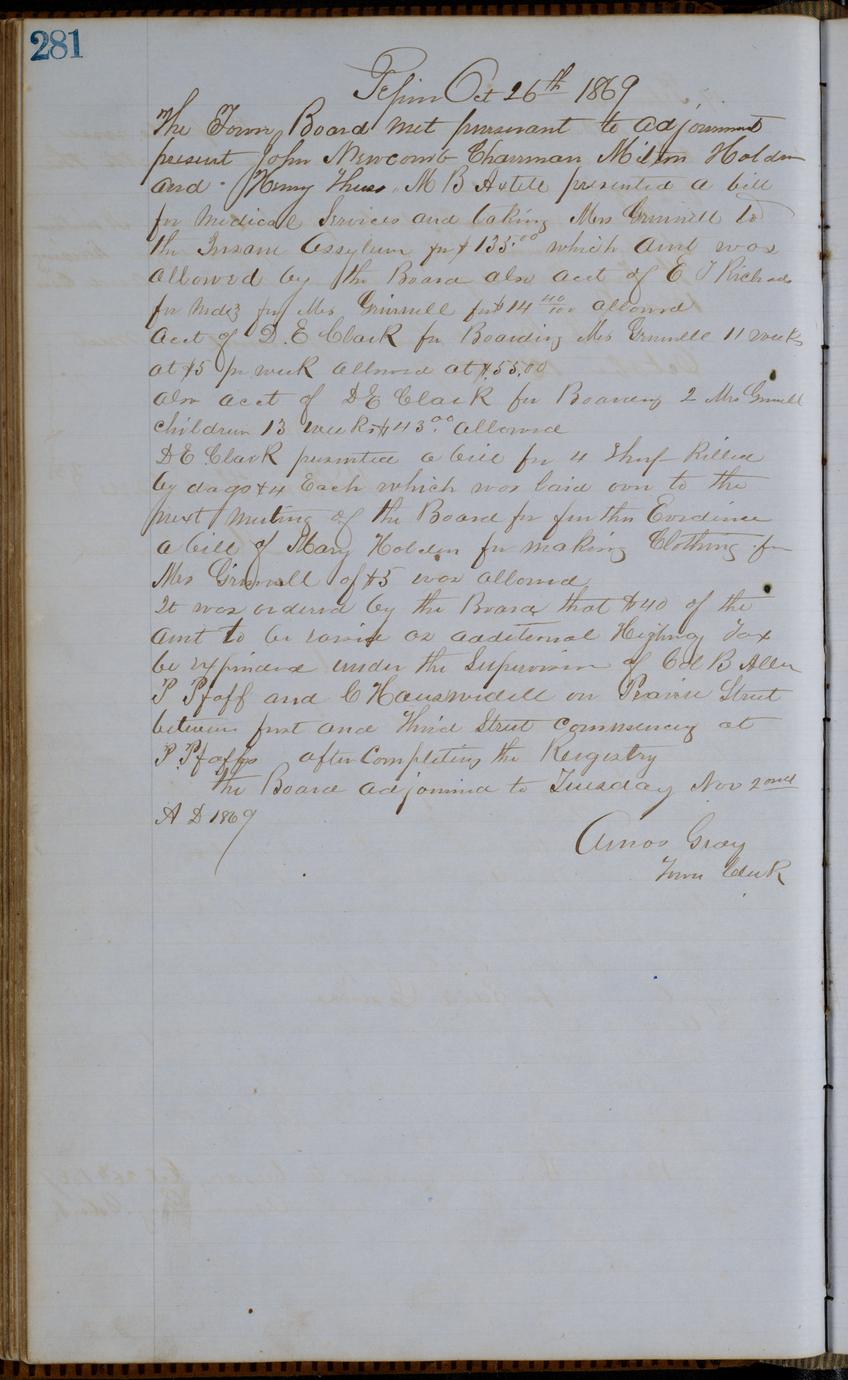 281
Pepin Oct 26th 1869
The Town Board met pursuant to adjournment
present John Newcomb Chairman Milton Holden
and Henry M B Axtell presented a bill
for Medical Services and taking Mrs Grinnell to
the Insane Assylum for $135.00 which amt was
allowed by the Board also acct of E T Richards
for Mdz for Mrs Grinnell for $14 40/100 allowed
acct of D. E Clark for Boarding Mrs Grinnell 11 weeks
at $5 pr week allowed at $55.00
also acct of D E Clark for Boarding 2 Mrs Grinnell
children 13 weeks $43.00 allowed
D E Clark presented a bill for 4 Sheep Killed
by dogs $4 Each which was laid over to the
next Meeting of the Board for further Evidence
a bill of Mary Holden for making Clothing for
Mrs Grinnell of $5 was allowed
It was ordered by the Board that $40 of the
amt to be raised as additional Highway Tax
be expended under the Supervision of B Allen
P Pfaff and C on Prairie Street
between first and third Street commencing at
P. Pfaffs after Completing the Registry
the Board adjourned to Tuesday Nov 2ond
A D 1869
Amos Gray
Town Clerk